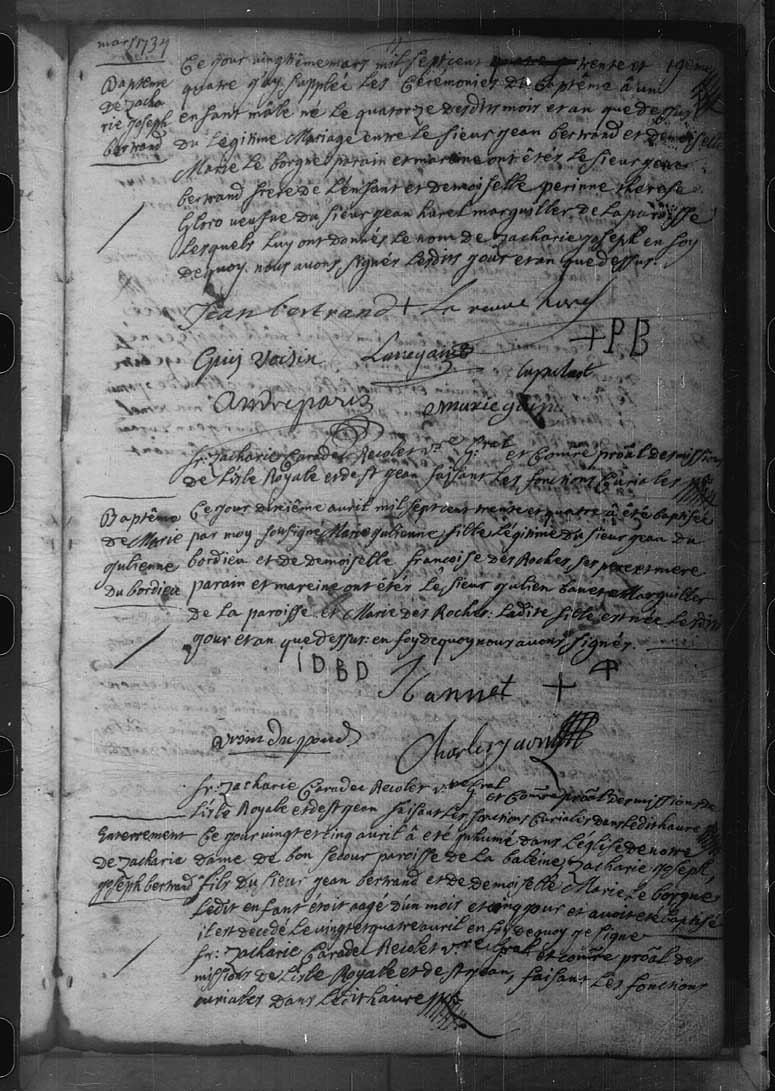 mars 1734
Ce jour vingtième mars mil sept cent trente et
Baptême
De Zacha
rie joseph
bertrand
quatre j'ay supplée Les Cérémonies du baptême à un
enfant mâle né Le quatorze desdits mois et an que dessus
Du Légitime Mariage entre Le sieur jean bertrand et demoiselle
Marie Le borgne parain et maraine ont êtés Le sieur jean
bertrand frere de L'enfant et demoiselle perinne therese
veufve du sieur jean harel marguiller de La paroisse
Lesquels Luy ont donnés Le nom de Zacharie joseph en foy
de quoy nous avons signés Lesdits jour et an que dessus.
Jean bertrand + La veuve
+ PB
Guy Voisin
andre paris
marie
fr. Zacharie Caradec Recolet v.re g.ral et Com.re prôal des missions
de L'isle Royale et de st jean faisant Les fonctions Curiales
Baptême
de Marie
julienne
Du bordieu
Ce jour dixième avril mil sept cent trente et quatre a été baptisée
par moy soussigné Marie julienne fille Légitime du sieur jean du
bordieu et de demoiselle françoise des Roches, ses pere et mere
parain et mareine ont étés Le sieur julien bannet Marguiller
de La paroisse et Marie des Roches. Ladite fille est née Lesdits
jour et an que dessus: en foy de quoy nous avons signés.
IDBD
J bannet +
fr. Zacharie Caradec Recolet v.re g.ral et Com.re prôal des missions de
L'isle Royale et de st jean faisant Les fonctions Curiales dans Ledit havre
Enterrement
de Zacharie
joseph bertrand
Ce jour vingt et cinq avril â eté inhumé dans L'église de notre
dame de bon secour paroisse de La baleine, Zacharie joseph
fils du sieur jean bertrand et de demoiselle Marie Le borgne
Ledit enfant étoit aagé d'un mois et cinq jour et avoit été baptisé
il est decedé Le vingt et quatre avril en foy de quoy je signe
fr. Zacharie Caradec Recolet v.re g.ral et com.re prôal des
missions de L'isle Royale et de st jean, faisant Les fonctions
curiales dans Ledit havre